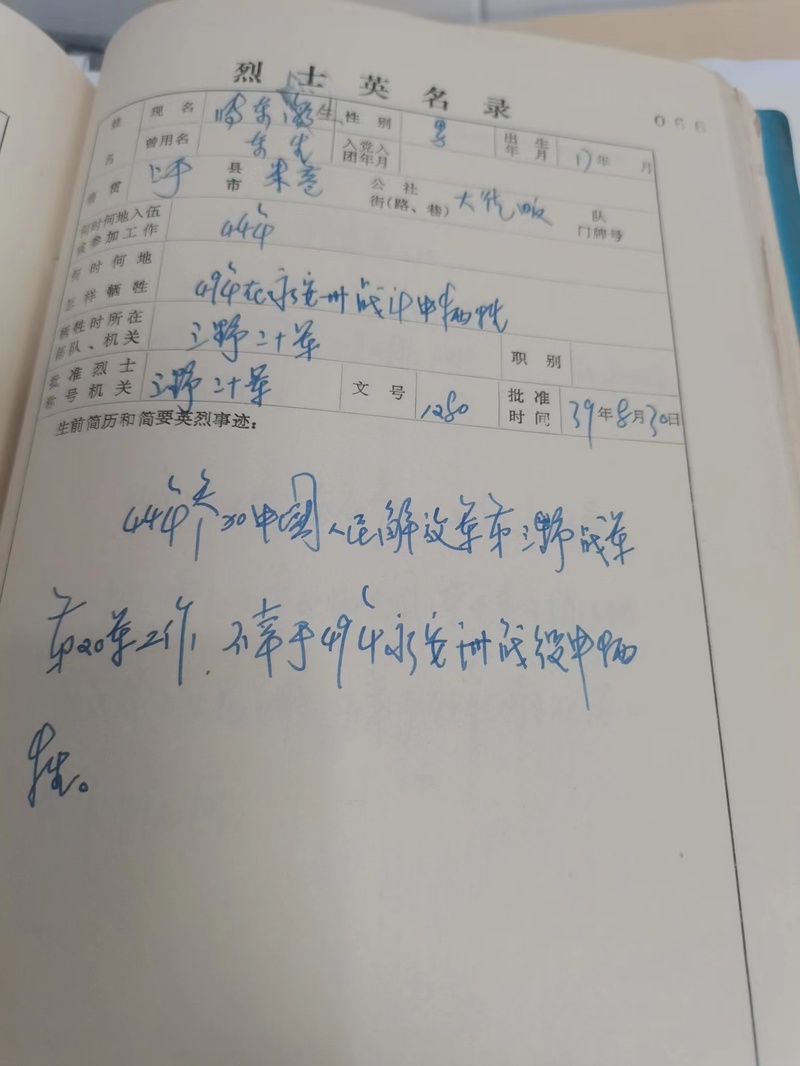 烈士英名录
姓名 现名 生 性别 男 出生年月 17年 月
曾用名 入党入团年月
籍贯 上于 县市 公社街(路、巷) 大 畈 队门牌号
何时何地入伍或参加工作 44年
何时何地怎样牺牲 49年在永安州战斗中牺牲
牺牲时所在部队、机关 三野二十军 职别
批准烈士称号机关 三野二十军 文号 1280 批准时间 39年8月30日
生前简历和简要英烈事迹:
44年参加中国人民解放军第三野战军
第20军工作,不幸于49年永安州战役中牺
牲。